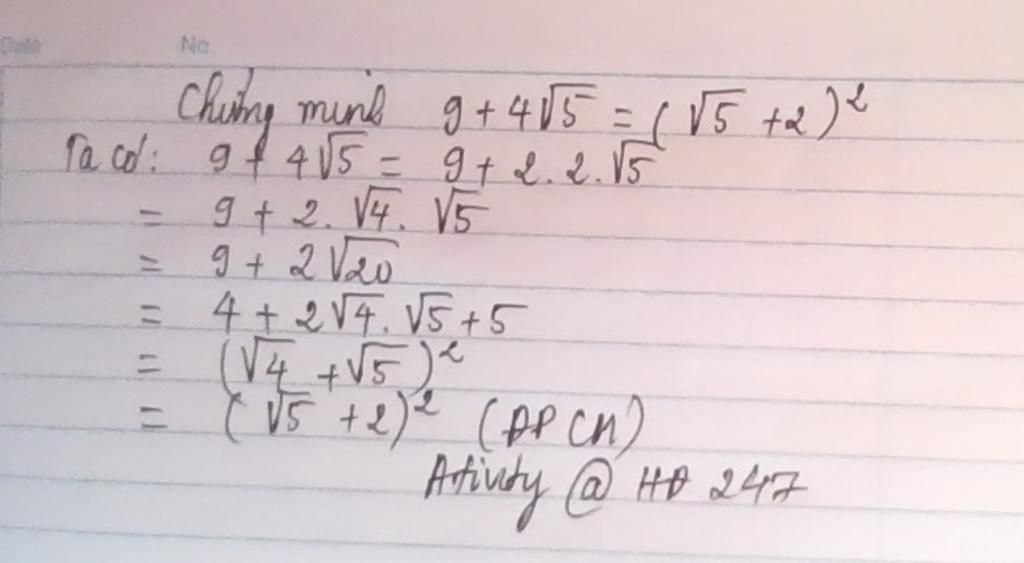 Date No.
Chứng minh 9 + 4√5 = (√5 + 2)²
Ta có: 9 + 4√5 = 9 + 2.2.√5
= 9 + 2.√4.√5
= 9 + 2√20
= 4 + 2√4.√5 + 5
= (√4 + √5)²
= (√5 + 2)² (ĐPCM)
Ativity @ HĐ 247